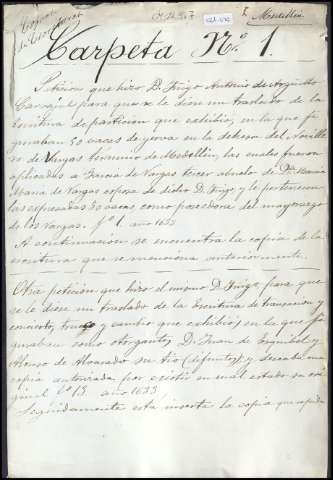 Medellin
Carpeta Nº 1.
Peticion que hizo D. Iñigo Antonio de Argüello
Carvajal para que se le diese un traslado de la
escritura de particion que exhibia, en la que fi-
guraban 30 vacas de yerva en la dehesa del Noville-
ro de Vargas termino de Medellin, las cuales fueron
aplicadas a Garcia de Vargas tercer abuelo de Dña Maria
de Vargas esposa de dicho D. Iñigo y le pertenecian
las expresadas 30 vacas como poseedora del mayorazgo
de los Vargas. fº 1. año 1633
A continuacion se encuentra la copia de la
escritura que se menciona anteriormente.
Otra peticion que hizo el mismo D. Iñigo para que
se le diese un traslado de la Escritura de transaccion y
concierto, trueque y cambio que exhibió, en la que fi-
guraban como otorgantes, D. Juan de
Alonso de Alvarado su tio (difunto), y sacada una
copia autorizada por existir en mal estado su ori-
ginal fº 13 año 1633
Seguidamente está inserta la copia que se pidió